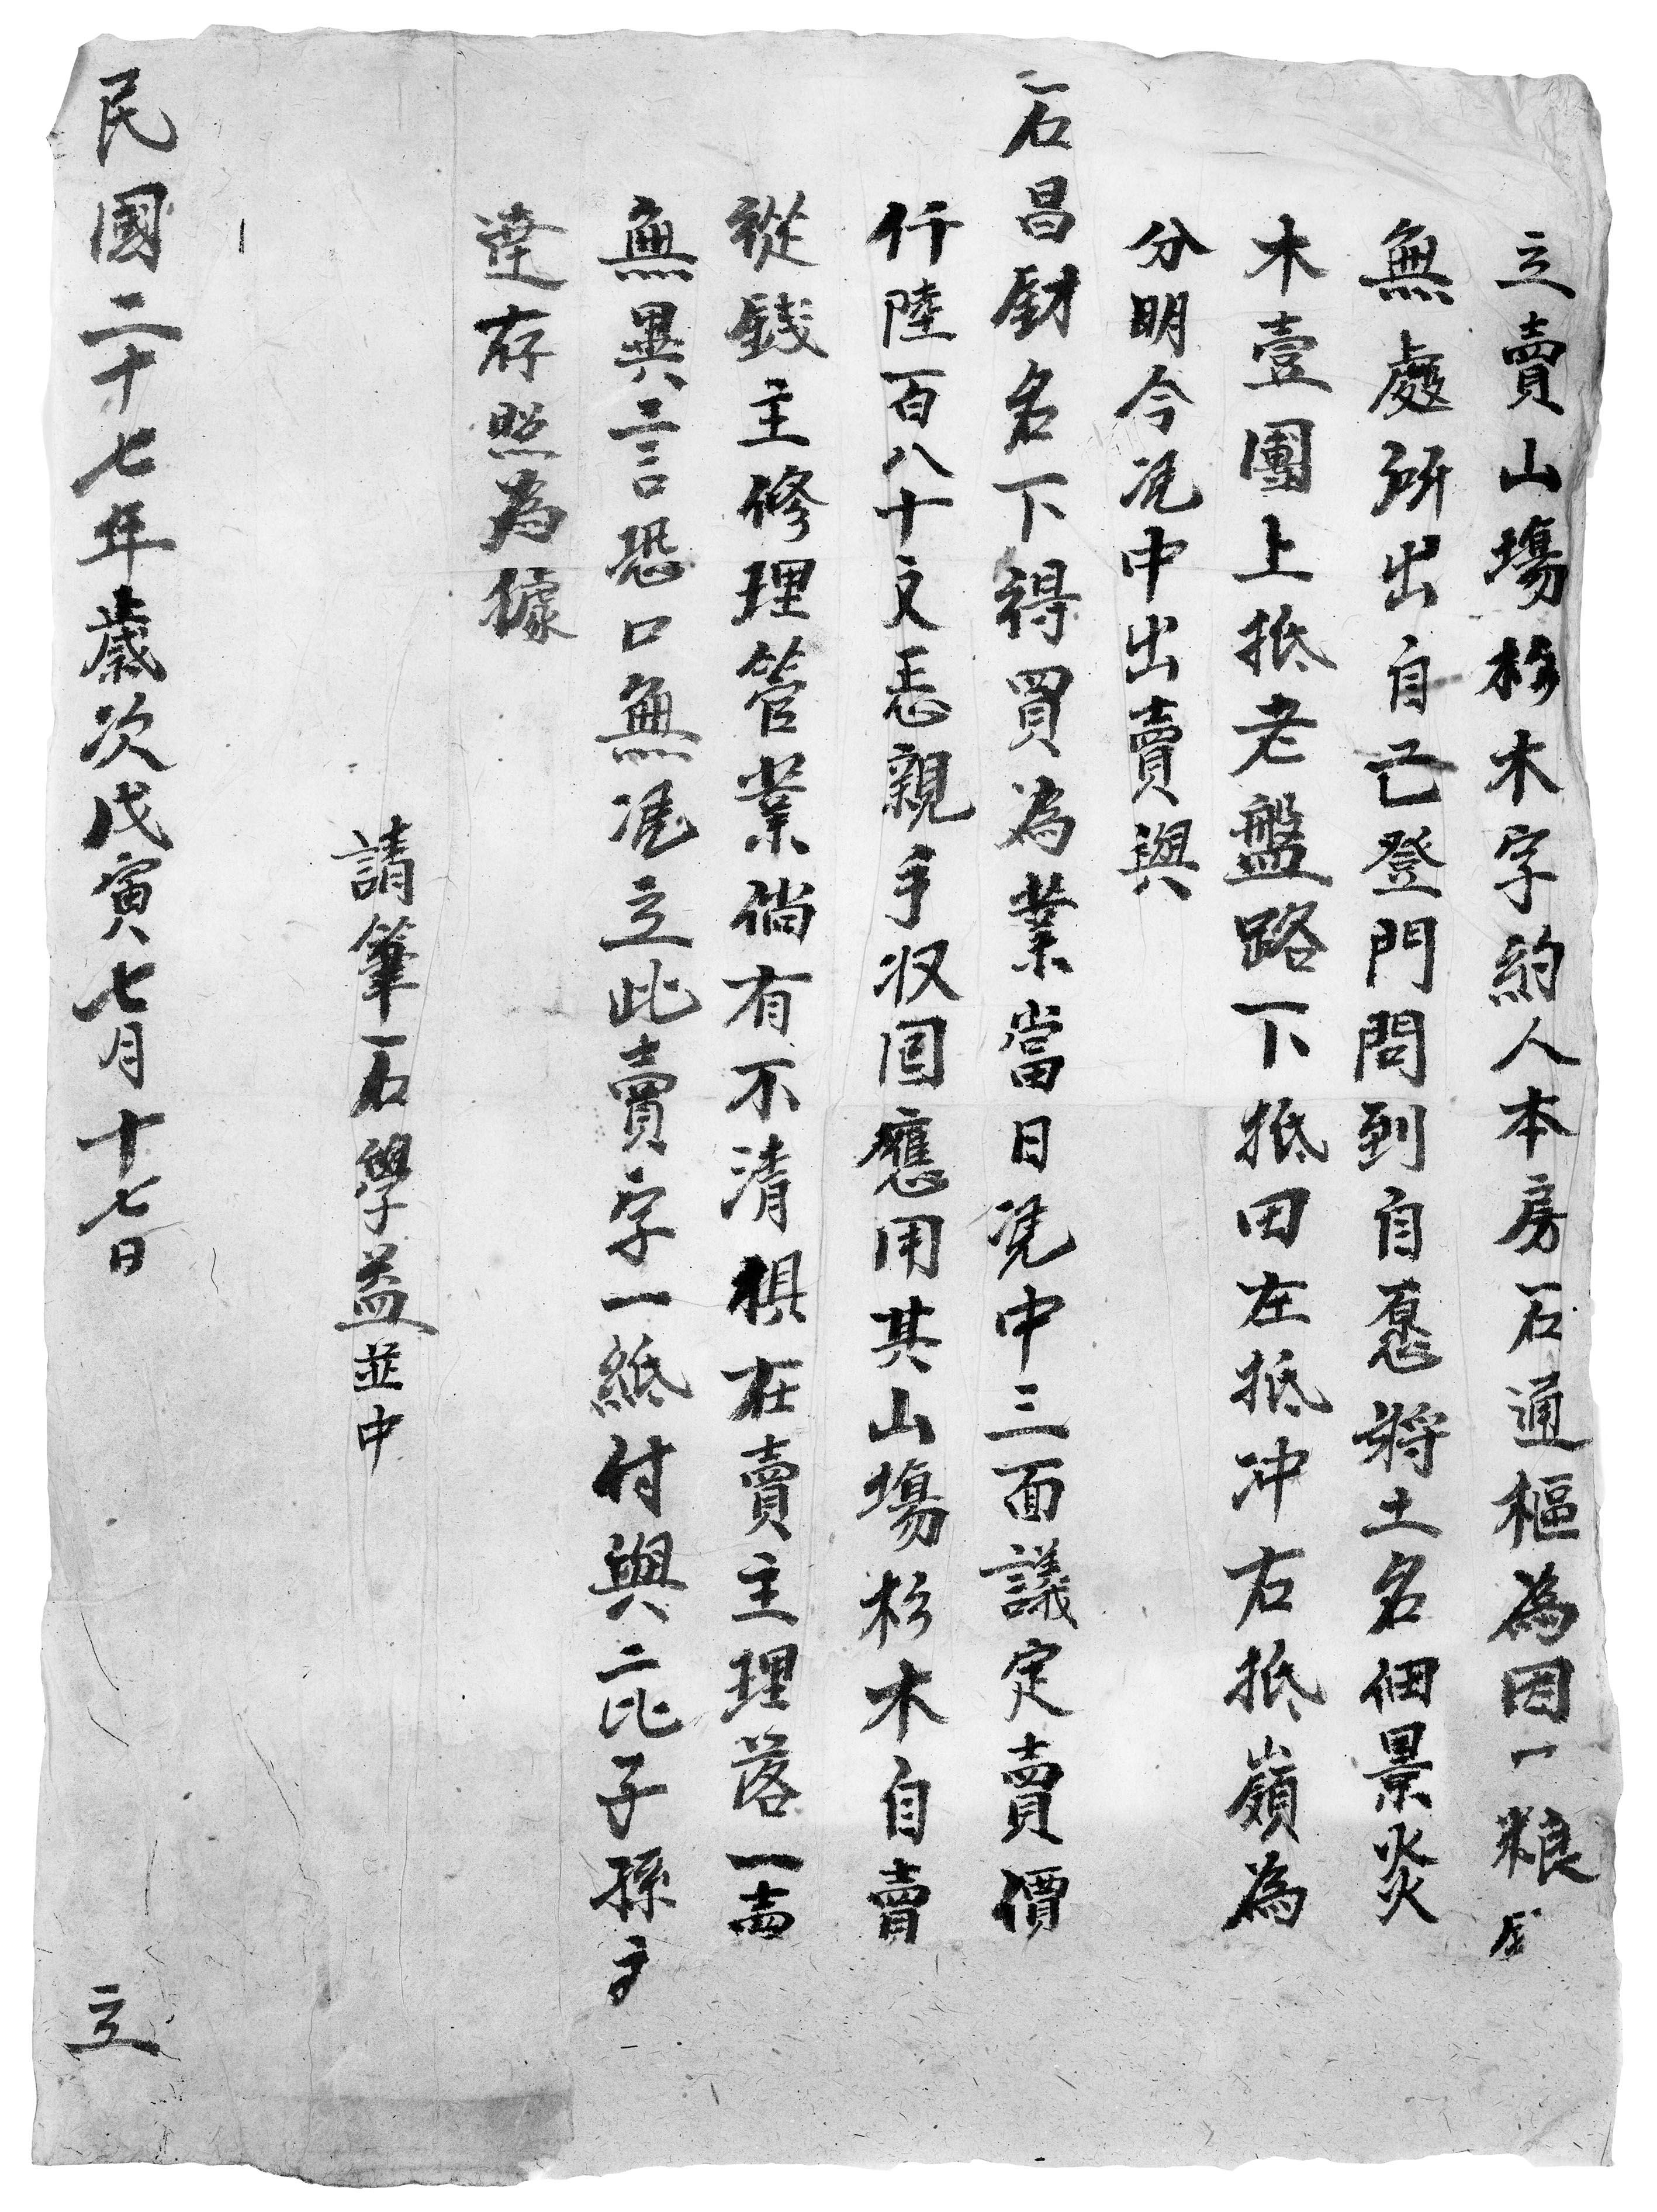 立賣山塲杉木字約人本房石通樞為因一粮
無處所出自己登門問到自愿將土名佃景炎
木壹團上抵老盤路下抵田左抵冲右抵嶺為
分明今凭中出賣與
石昌財名下得買為業當日凭中三面議定賣價
仟陸百八十文恁親手收囬應用其山塲杉木自賣
從錢主修理管業倘有不清俱在賣主理落一古
無異言恐口無凭立此賣字一紙付與二比子孫
達存照為據
請筆石學益並中
民國二十七年歲次戊寅七月十七日 立